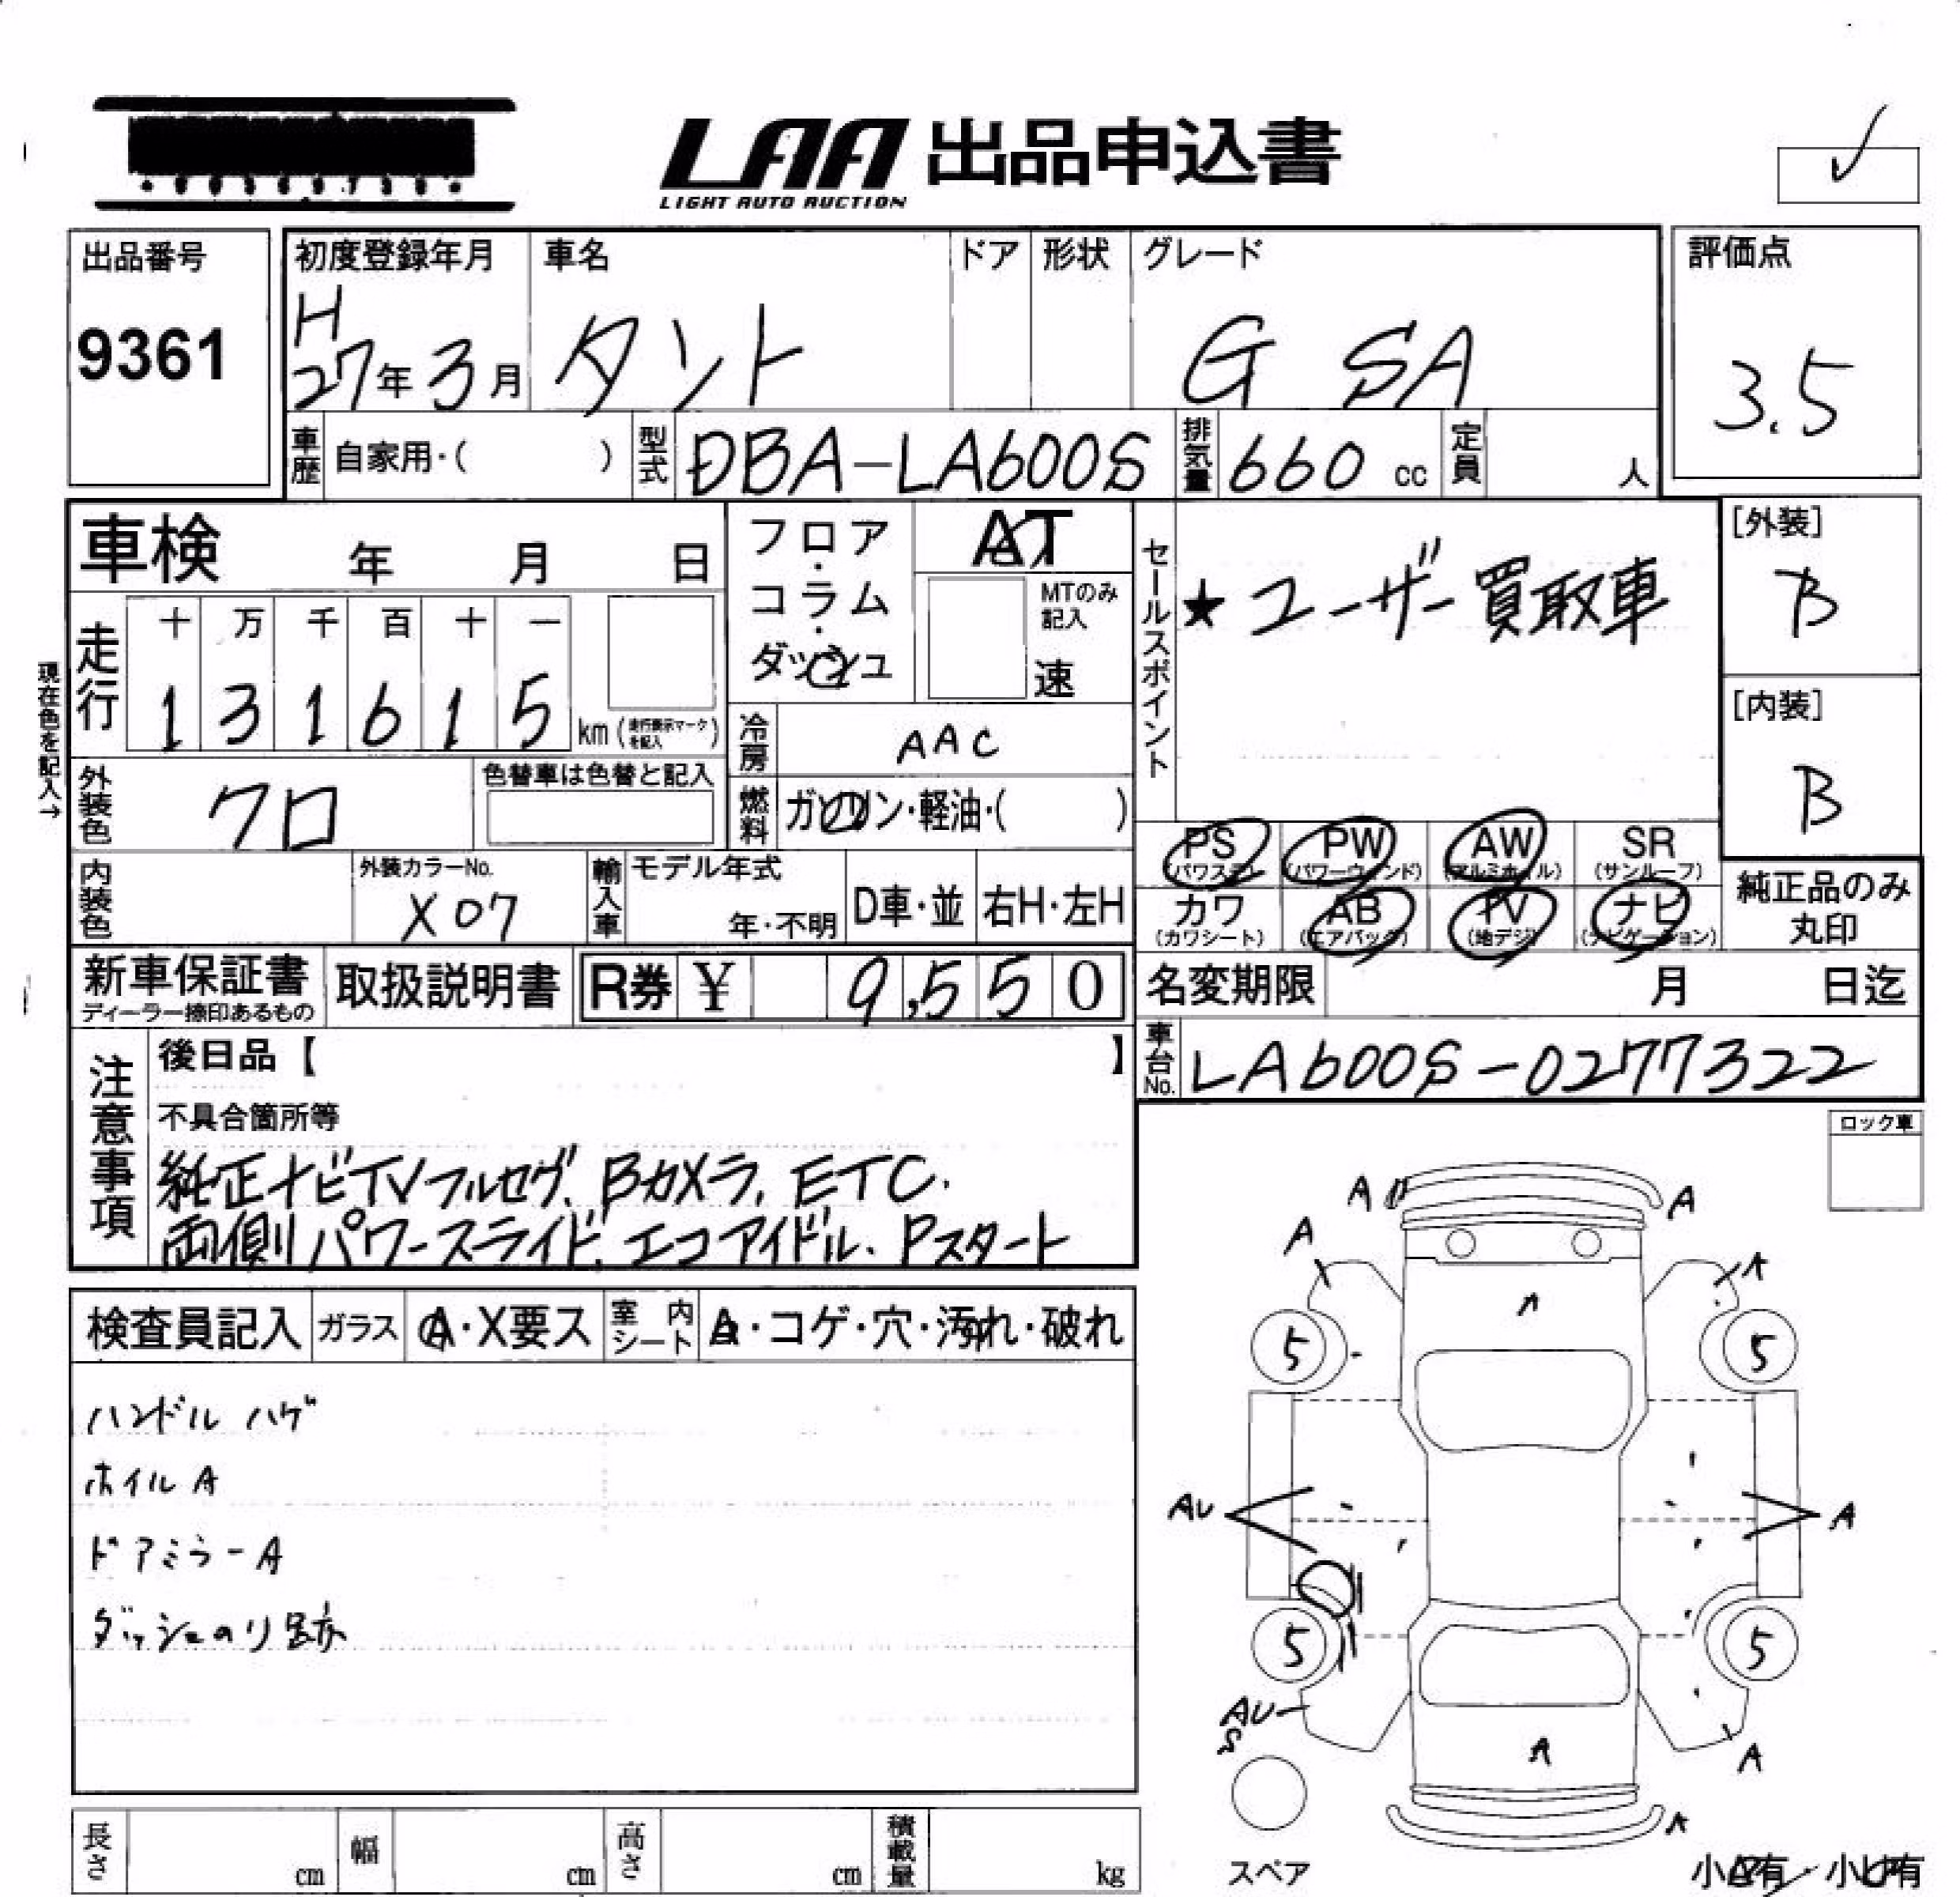 LAA 出品申込書
LIGHT AUTO AUCTION
出品番号
9361
初度登録年月 車名 ドア 形状 グレード
H27年3月 タント G SA
評価点
3.5
車歴 自家用・( ) 型式 DBA-LA600S 排気量 660 cc 定員 人
車検 年 月 日
フロア・コラム・ダッシュ
AT
MTのみ記入
速
セールスポイント
★ユーザー買取車
[外装]
B
[内装]
B
現在色を記入→
走行
十 万 千 百 十 一
1 3 1 6 1 5 km (走行表示マークを記入)
冷房 AAC
外装色 クロ
色替車は色替と記入
燃料 ガソリン・軽油・( )
PS PW AW SR
(パワステ) (パワーウィンド) (アルミホイル) (サンルーフ)
カワ AB TV ナビ
(カワシート) (エアバッグ) (地デジ) (ナビゲーション)
純正品のみ
丸印
内装色
外装カラーNo.
X07
輸入車 モデル年式
年・不明 D車・並 右H・左H
新車保証書
ディーラー捺印あるもの
取扱説明書
R券 ¥ 9,550
名変期限 月 日迄
車台No. LA600S-0277322
注意事項
後日品【 】
不具合箇所等
純正ナビTVフルセグ、Bカメラ、ETC、
両側パワースライド、エコアイドル、Pスタート
ロック車
検査員記入 ガラス A・X要ス 室内シート A・コゲ・穴・汚れ・破れ
ハンドル ハゲ
ホイル A
ドアミラーA
ダッシュのり跡
A A
A A
A
5 5
AU A
5 5
AU
S
A A
A
スペア
小A有・小U有
長さ cm 幅 cm 高さ cm 積載量 kg